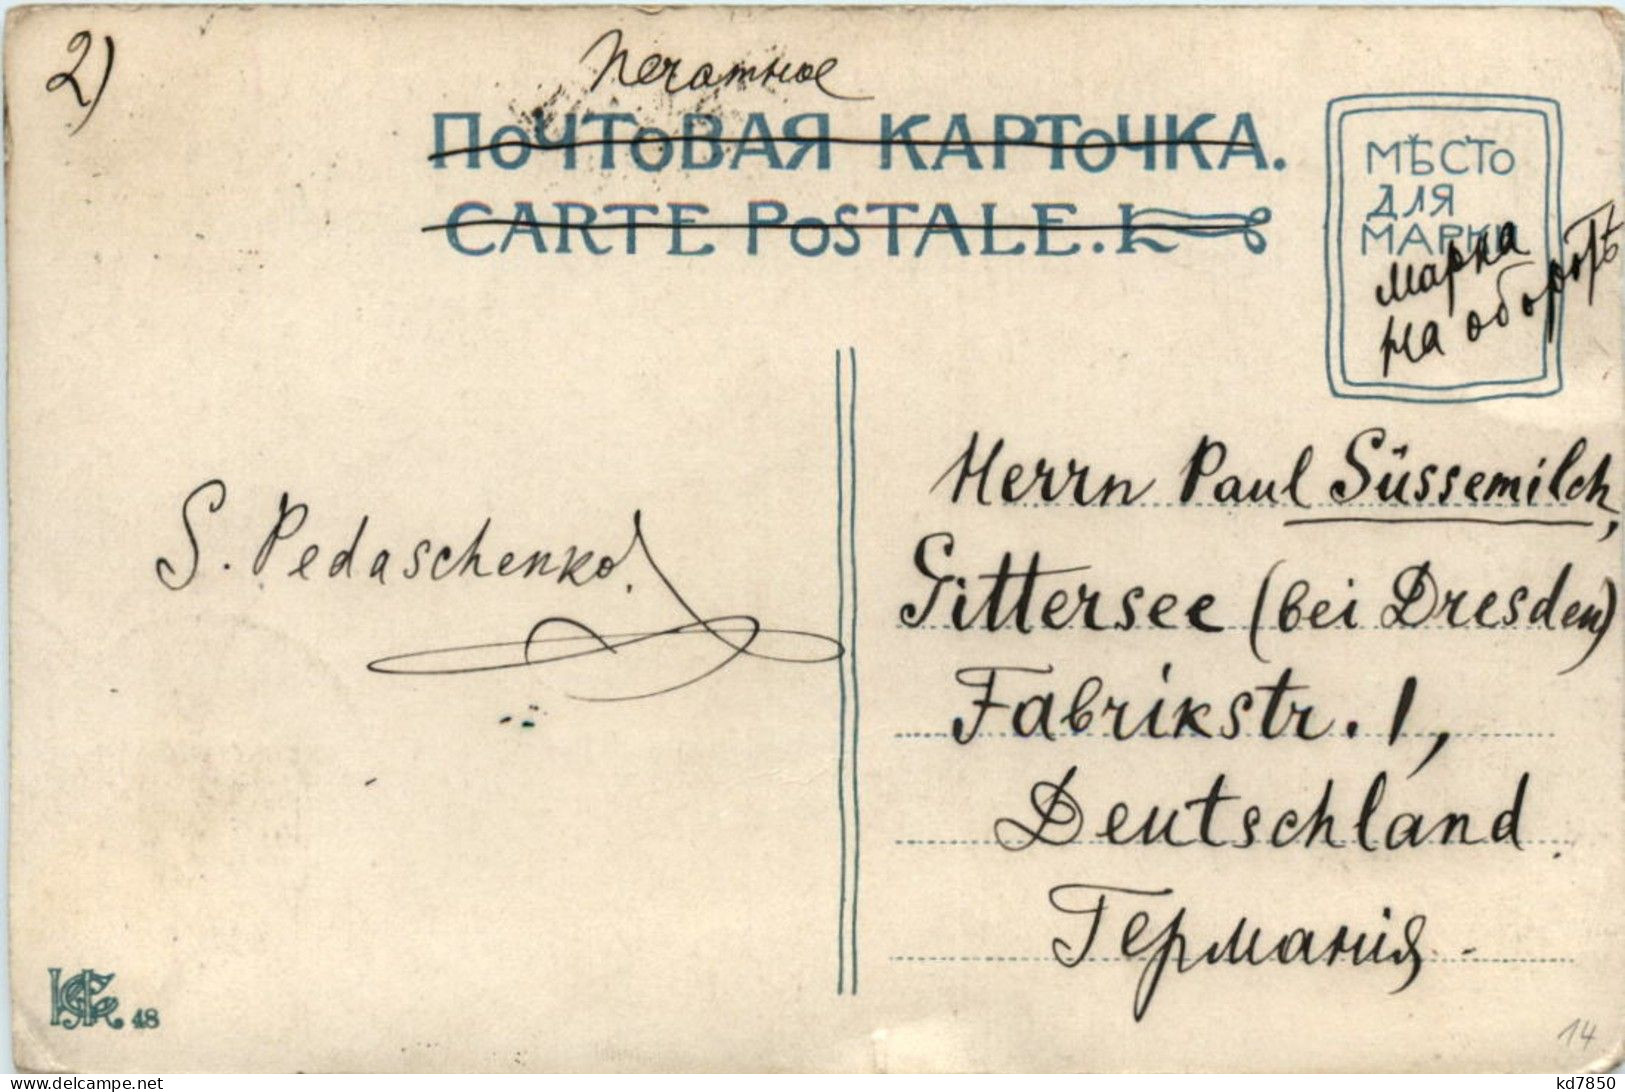 2)
Печатное
ПОЧТОВАЯ КАРТОЧКА.
CARTE POSTALE.
МѢСТО
ДЛЯ
МАРКИ
марка
на оборотѣ
Herrn Paul Süssemilch,
S. Pedaschenko.
Gittersee (bei Dresden)
Fabrikstr. 1,
Deutschland.
Германія
48
14
www.delcampe.net
kd7850